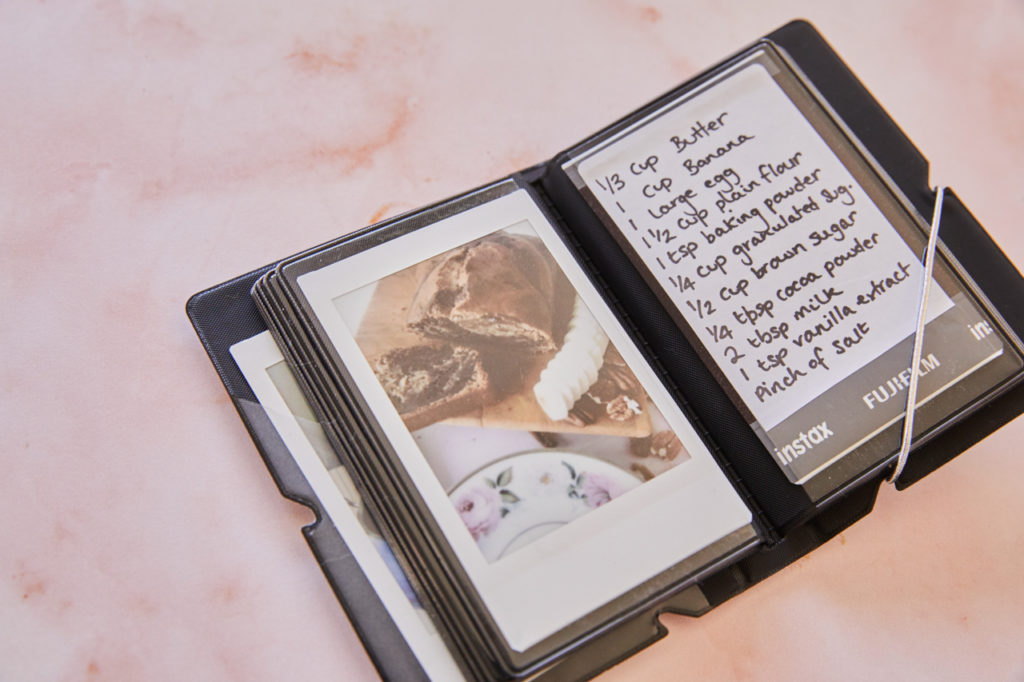 1/3 cup Butter
1 cup Banana
1 Large egg
1 1/2 cup plain flour
1 tsp baking powder
1/4 cup granulated sug.
1/2 cup brown sugar
1/4 tbsp cocoa powder
2 tbsp milk
1 tsp vanilla extract
Pinch of salt
instax FUJIFILM ins